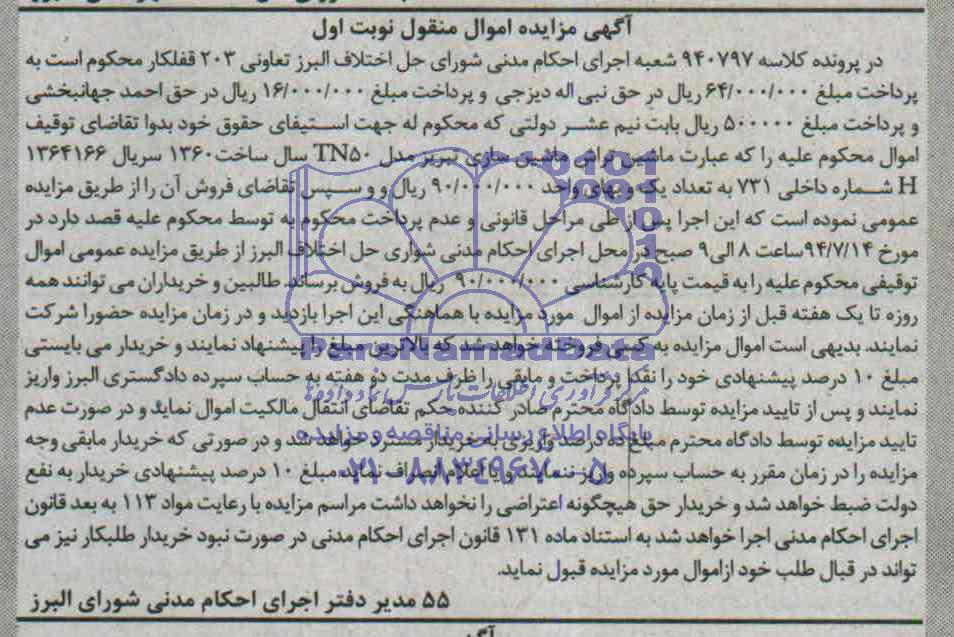 آگهی مزایده اموال منقول نوبت اول
در پرونده کلاسه ۹۴۰۷۹۷ شعبه اجرای احکام مدنی شورای حل اختلاف البرز تعاونی ۲۰۳ قفلکار محکوم است به
پرداخت مبلغ ۶۴/۰۰۰/۰۰۰ ریال در حق نبی اله دیزجی و پرداخت مبلغ ۱۶/۰۰۰/۰۰۰ ریال در حق احمد جهانبخشی
و پرداخت مبلغ ۵۰۰۰۰۰ ریال بابت نیم عشر دولتی که محکوم له جهت استیفای حقوق خود بدوا تقاضای توقیف
اموال محکوم علیه را که عبارت ماشین تراش ماشین سازی تبریز مدل TN۵۰ سال ساخت۱۳۶۰ سریال ۱۳۶۴۱۶۶
H شماره داخلی ۷۳۱ به تعداد یک و بهای واحد ۹۰/۰۰۰/۰۰۰ ریال و و سپس تقاضای فروش آن را از طریق مزایده
عمومی نموده است که این اجرا پس از طی مراحل قانونی و عدم پرداخت محکوم به توسط محکوم علیه قصد دارد در
مورخ ۹۴/۷/۱۴ساعت ۸ الی۹ صبح در محل اجرای احکام مدنی شواری حل اختلاف البرز از طریق مزایده عمومی اموال
توقیفی محکوم علیه را به قیمت پایه کارشناسی ۹۰/۰۰۰/۰۰۰ ریال به فروش برساند. طالبین و خریداران می توانند همه
روزه تا یک هفته قبل از زمان مزایده از اموال مورد مزایده با هماهنگی این اجرا بازدید و در زمان مزایده حضورا شرکت
نمایند. بدیهی است اموال مزایده به کسی فروخته خواهد شد که بالاترین مبلغ را پیشنهاد نمایند و خریدار می بایستی
مبلغ ۱۰ درصد پیشنهادی خود را نقدا پرداخت و مابقی را ظرف مدت دو هفته به حساب سپرده دادگستری البرز واریز
نمایند و پس از تایید مزایده توسط دادگاه محترم صادر کننده حکم تقاضای انتقال مالکیت اموال نماید و در صورت عدم
تایید مزایده توسط دادگاه محترم مبلغ ده درصد واریزی به خریدار مسترد خواهد شد و در صورتی که خریدار مابقی وجه
مزایده را در زمان مقرر به حساب سپرده واریز ننمایند و یا اعلام انصراف نمایند مبلغ ۱۰ درصد پیشنهادی خریدار به نفع
دولت ضبط خواهد شد و خریدار حق هیچگونه اعتراضی را نخواهد داشت مراسم مزایده با رعایت مواد ۱۱۳ به بعد قانون
اجرای احکام مدنی اجرا خواهد شد به استناد ماده ۱۳۱ قانون اجرای احکام مدنی در صورت نبود خریدار طلبکار نیز می
تواند در قبال طلب خود ازاموال مورد مزایده قبول نماید.
۵۵ مدیر دفتر اجرای احکام مدنی شورای البرز
ParsNamadData
پایگاه اطلاع رسانی مناقصه و مزایده
۰۲۱-۸۸۳۴۹۶۷۰-۵